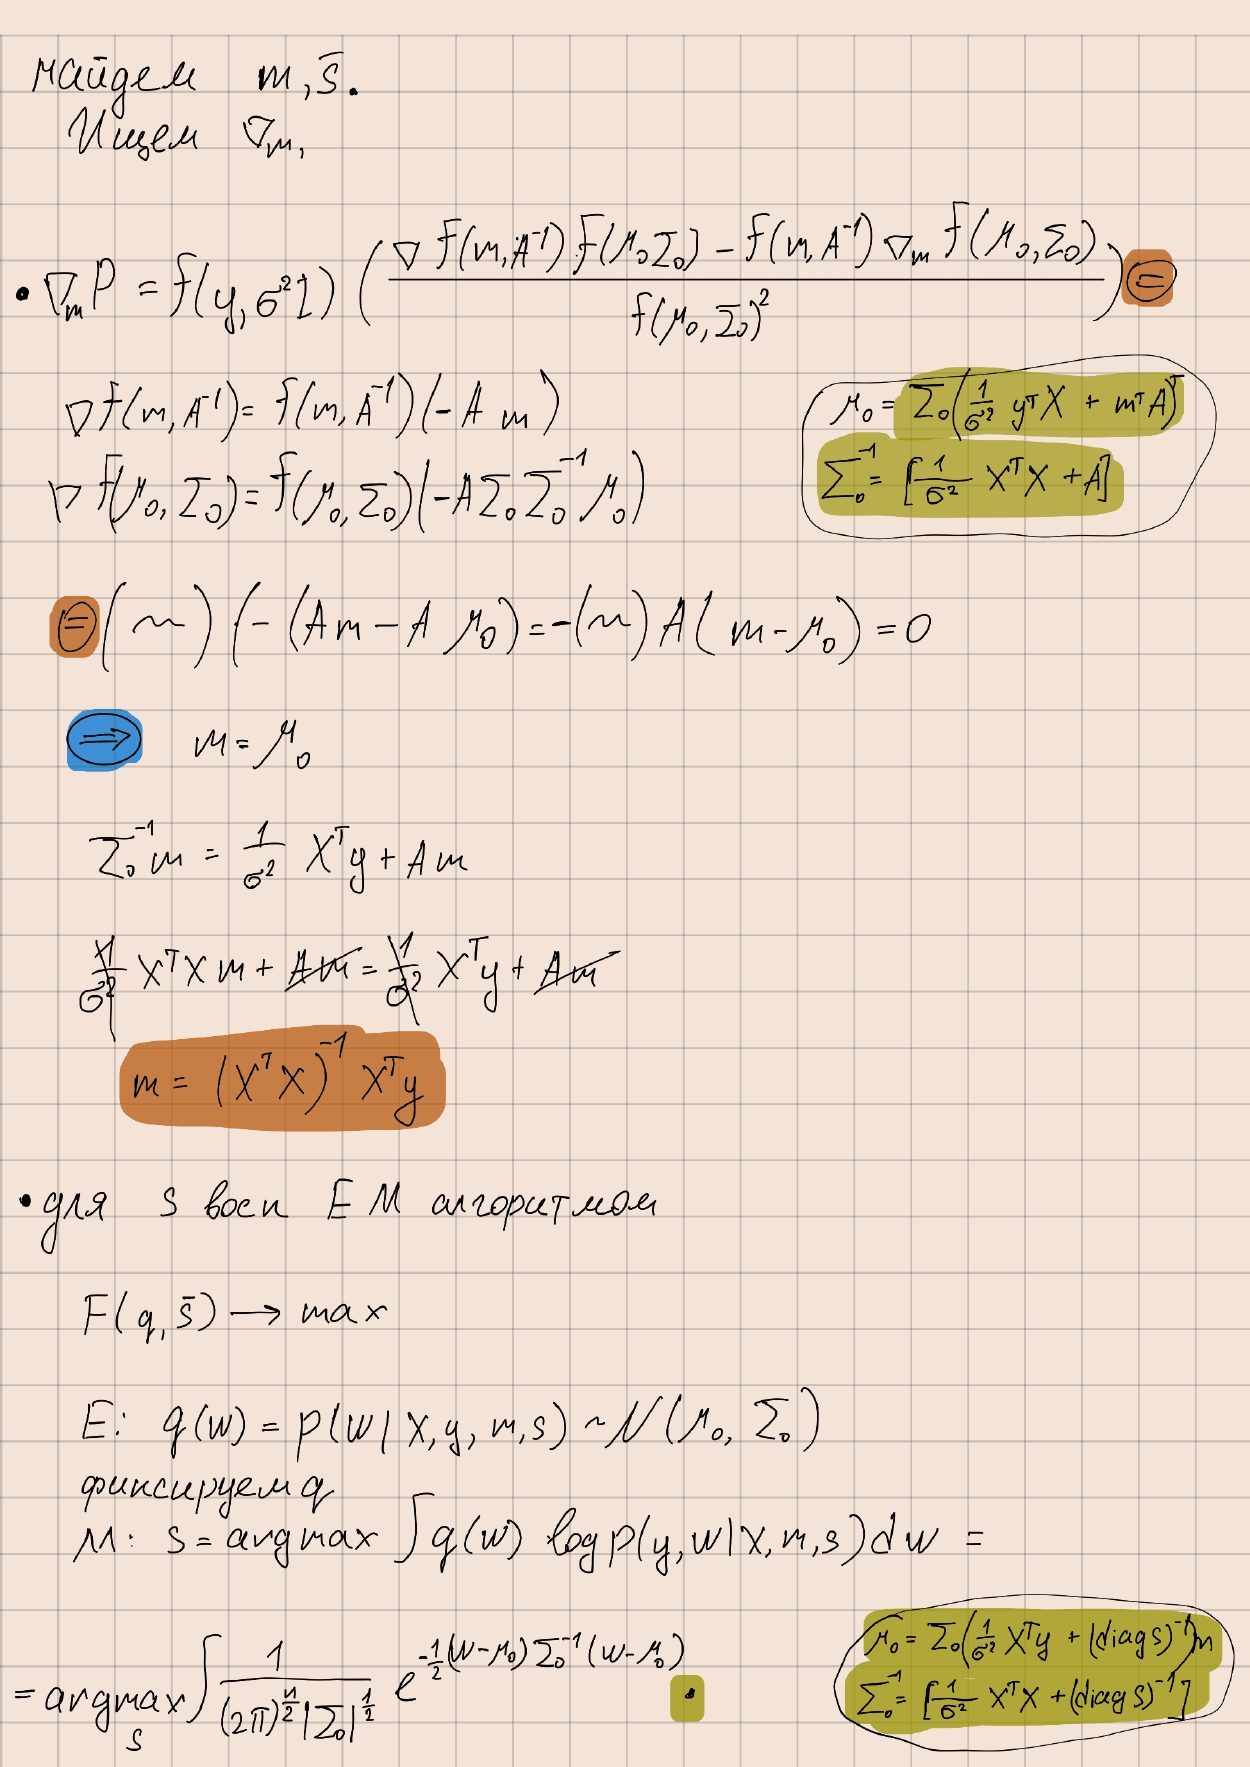 найдем m, s̄.
Ищем ∇ₘ,
• ∇ₘP = f(y, σ²I) ( (∇ f(m, A⁻¹) f(μ₀ Σ₀) − f(m, A⁻¹) ∇ₘ f(μ₀, Σ₀)) / f(μ₀, Σ₀)² ) =
∇f(m, A⁻¹) = f(m, A⁻¹)(−A m)
μ₀ = Σ₀(1/σ² yᵀX + mᵀA)ᵀ
∇ f(μ₀, Σ₀) = f(μ₀, Σ₀)(−AΣ₀ Σ₀⁻¹ μ₀)
Σ₀⁻¹ = [1/σ² XᵀX + A]
= (~) (−(Am − A μ₀) = −(~) A(m − μ₀) = 0
⇒ m = μ₀
Σ₀⁻¹ m = 1/σ² Xᵀy + Am
1/σ² XᵀX m + Am = 1/σ² Xᵀy + Am
m = (XᵀX)⁻¹ Xᵀy
• для s восп EM алгоритмом
F(q, s̄) → max
E: q(w) = p(w | X, y, m, s) ~ N(μ₀, Σ₀)
фиксируем q
M: s = argmax ∫ q(w) log p(y, w | X, m, s) dw =
= argmax_s ∫ 1/((2π)^(n/2) |Σ₀|^(1/2)) e^(−1/2 (w−μ₀) Σ₀⁻¹ (w−μ₀)) ·
μ₀ = Σ₀(1/σ² Xᵀy + (diag s)⁻¹)m
Σ₀⁻¹ = [1/σ² XᵀX + (diag s)⁻¹]